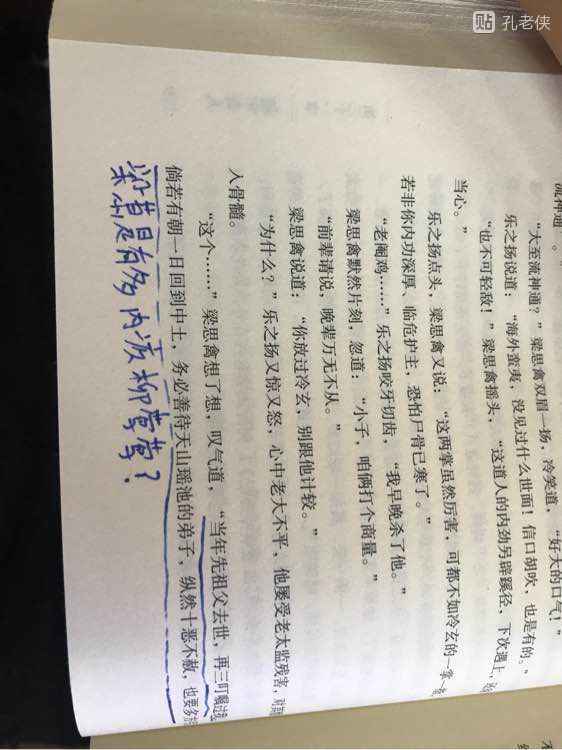 流神通”。
“大至流神通？”梁思禽双眉一扬，冷笑道，“好大的口气！”
乐之扬说道：“海外蛮夷，没见过什么世面！信口胡吹，也是有的。”
“也不可轻敌！”梁思禽摇头，“这道人的内劲另辟蹊径，下次遇上，
当心。”
乐之扬点头，梁思禽又说：“这两掌虽然厉害，可都不如冷玄的一掌一
若非你内功深厚、临危护主，恐怕尸骨已寒了。”
“老阉鸡……”乐之扬咬牙切齿，“我早晚杀了他。”
梁思禽默然片刻，忽道：“小子，咱俩打个商量。”
“前辈请说，晚辈万无不从。”
梁思禽说道：“你放过冷玄，别跟他计较。”
“为什么？”乐之扬又惊又怒，心中老大不平，他屡受老太监残害，对
入骨髓。
“这个……”梁思禽想了想，叹气道，“当年先祖父去世，再三叮嘱过
倘若有朝一日回到中土，务必善待天山瑶池的弟子，纵然十恶不赦，也要多
梁萧是有多内疚柳莺莺？
贴 孔老侠